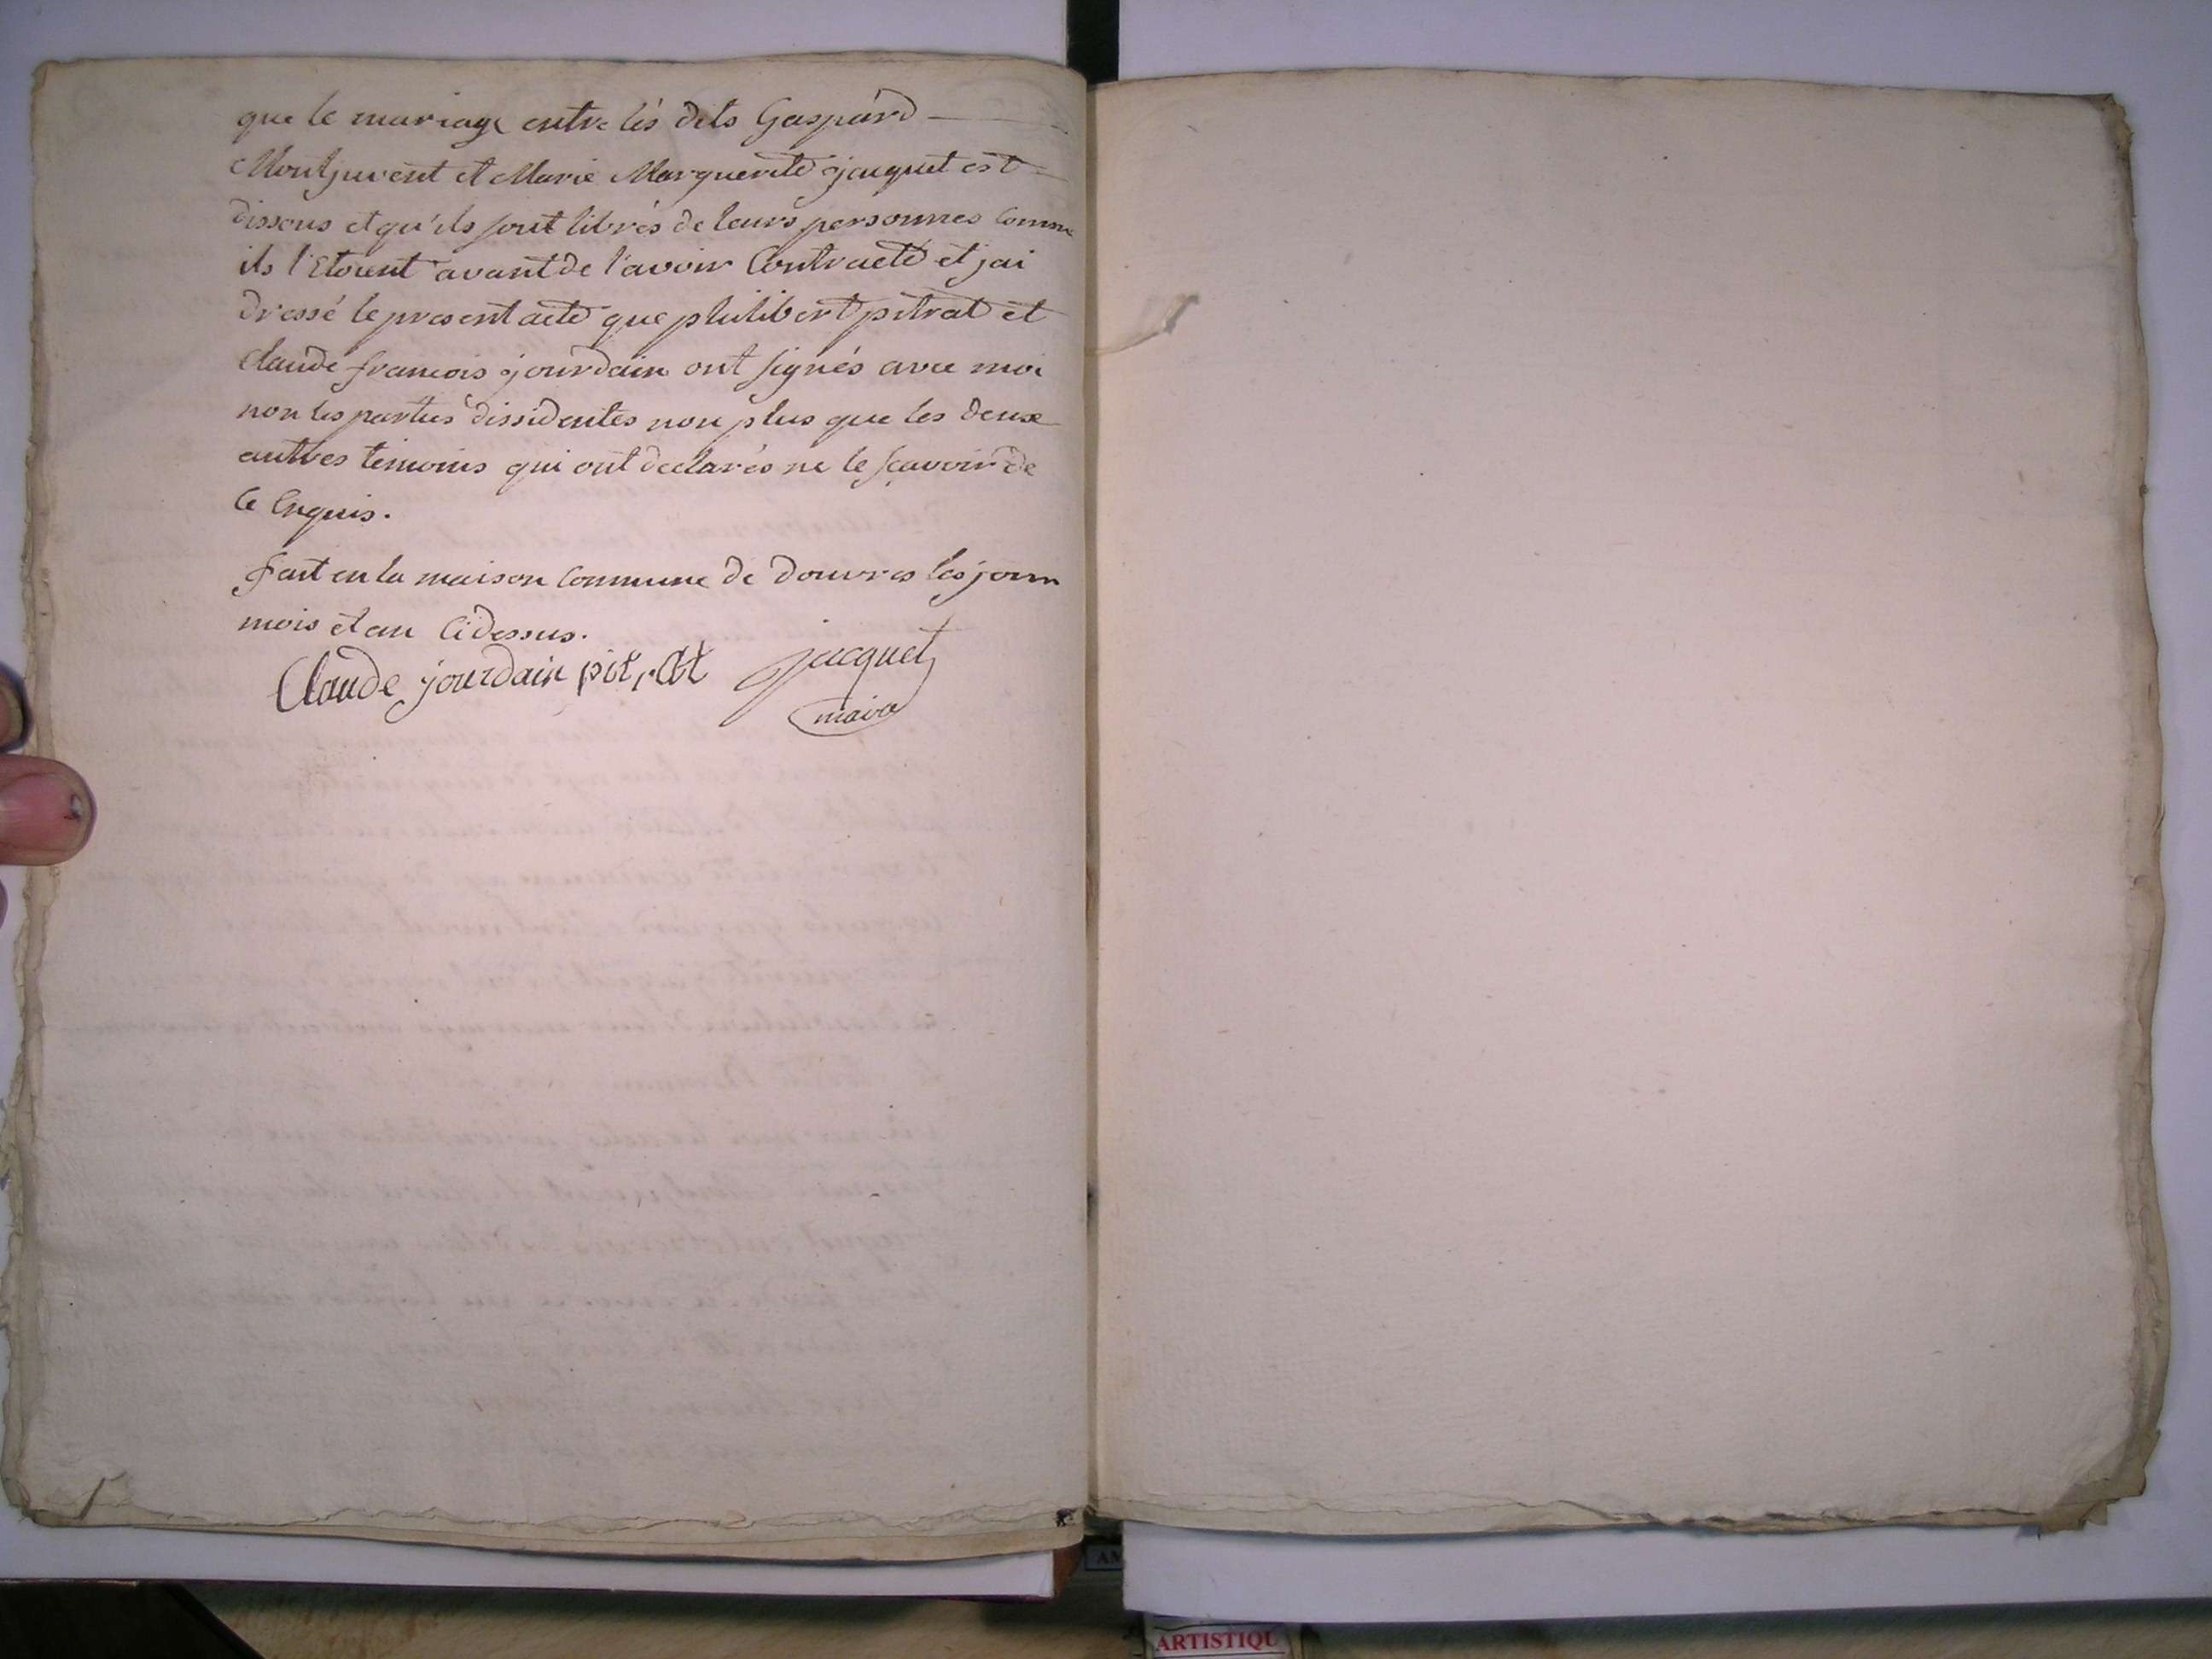 que le mariage entre lés dits Gaspard
Montjuvent et Marie Marguerite jacquet est
dissous et qu'ils sont librés de leurs personnes comme
ils l'Etoient avant de l'avoir Contracté et jai
dressé le present acte que philibert pitrat et
Claude francois jourdain ont signés avec moi
non les parties dissidentes non plus que les deux
autres temoins qui ont declarés ne le sçavoir de
Ce Enquis.
fait en la maison Commune de douvres les jour
mois et an Ci dessus.
Claude jourdain pitrat jacquet
maire
ARTISTIQU